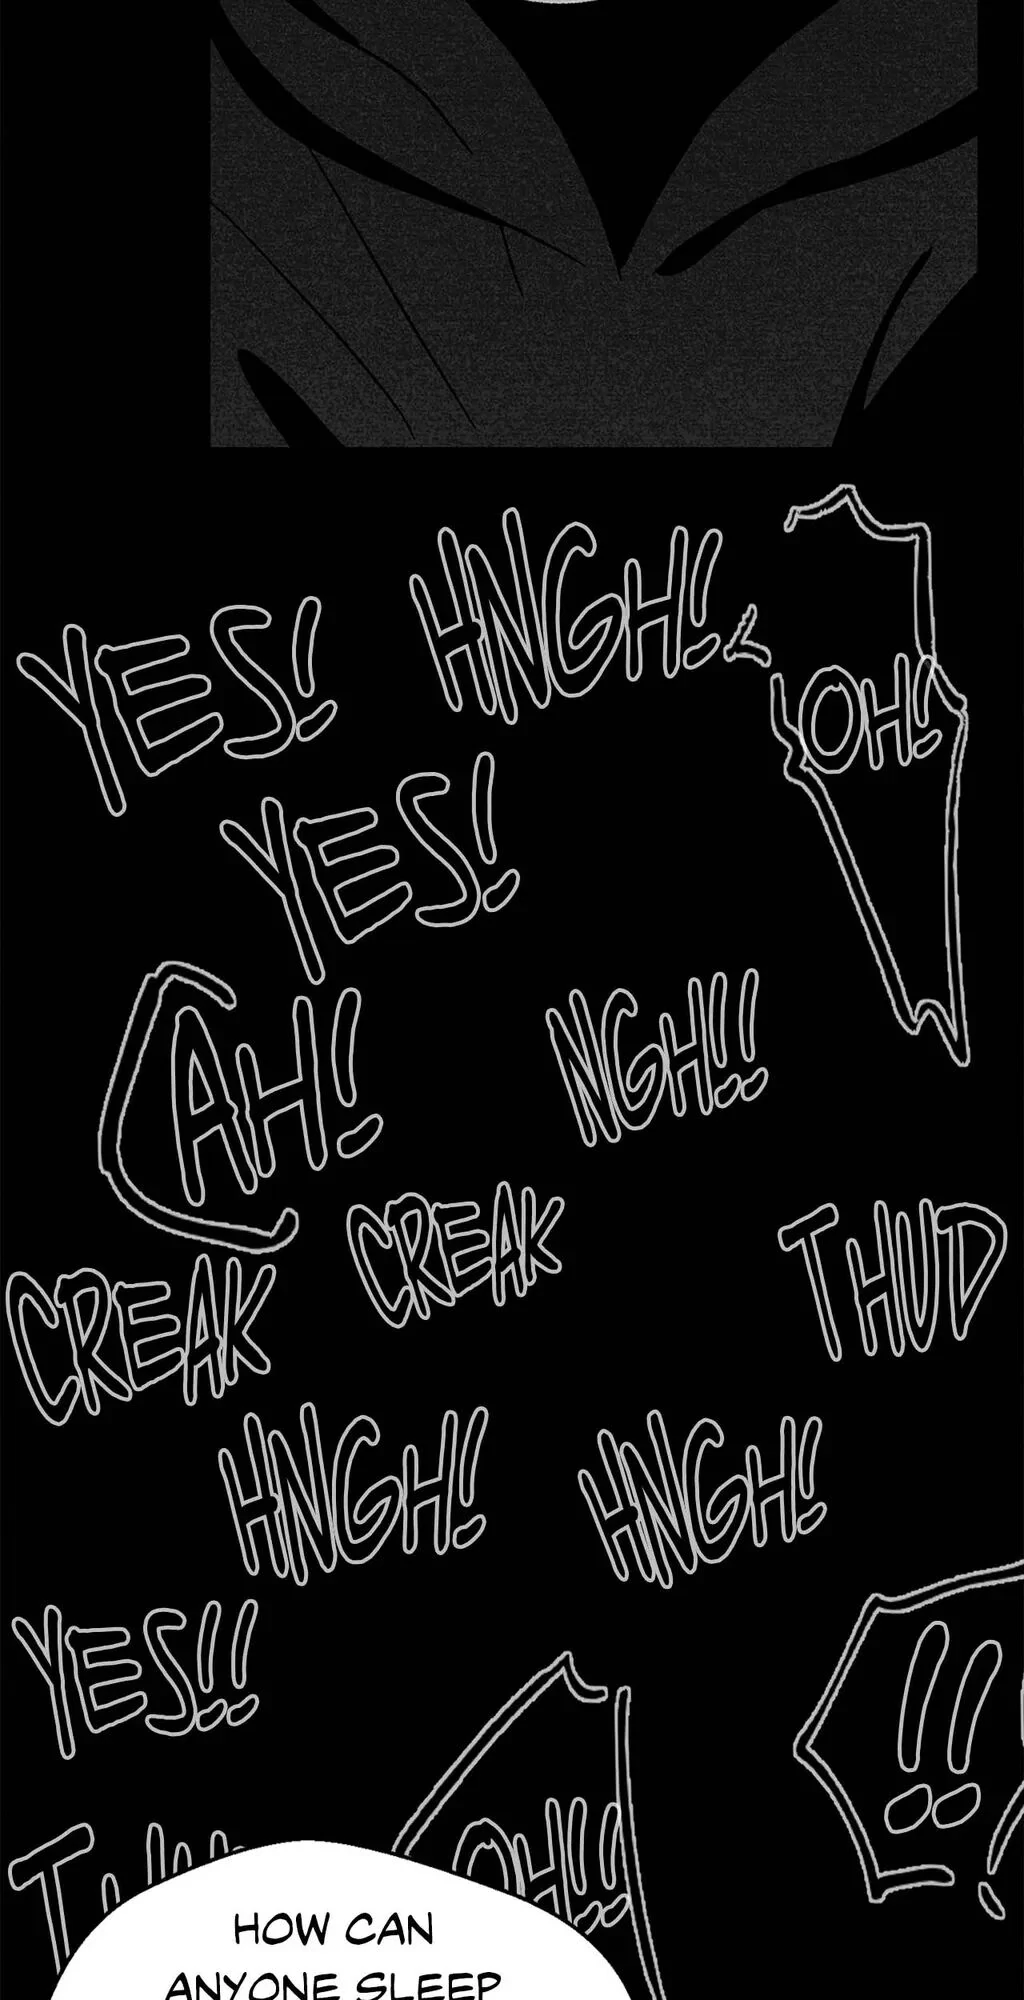 HNGH!
YES!
OH!
YES!
AH!
NGH!!
CREAK
THUD
CREAK
HNGH!
HNGH!
YES!!
!!
OH!!
HOW CAN
ANYONE SLEEP